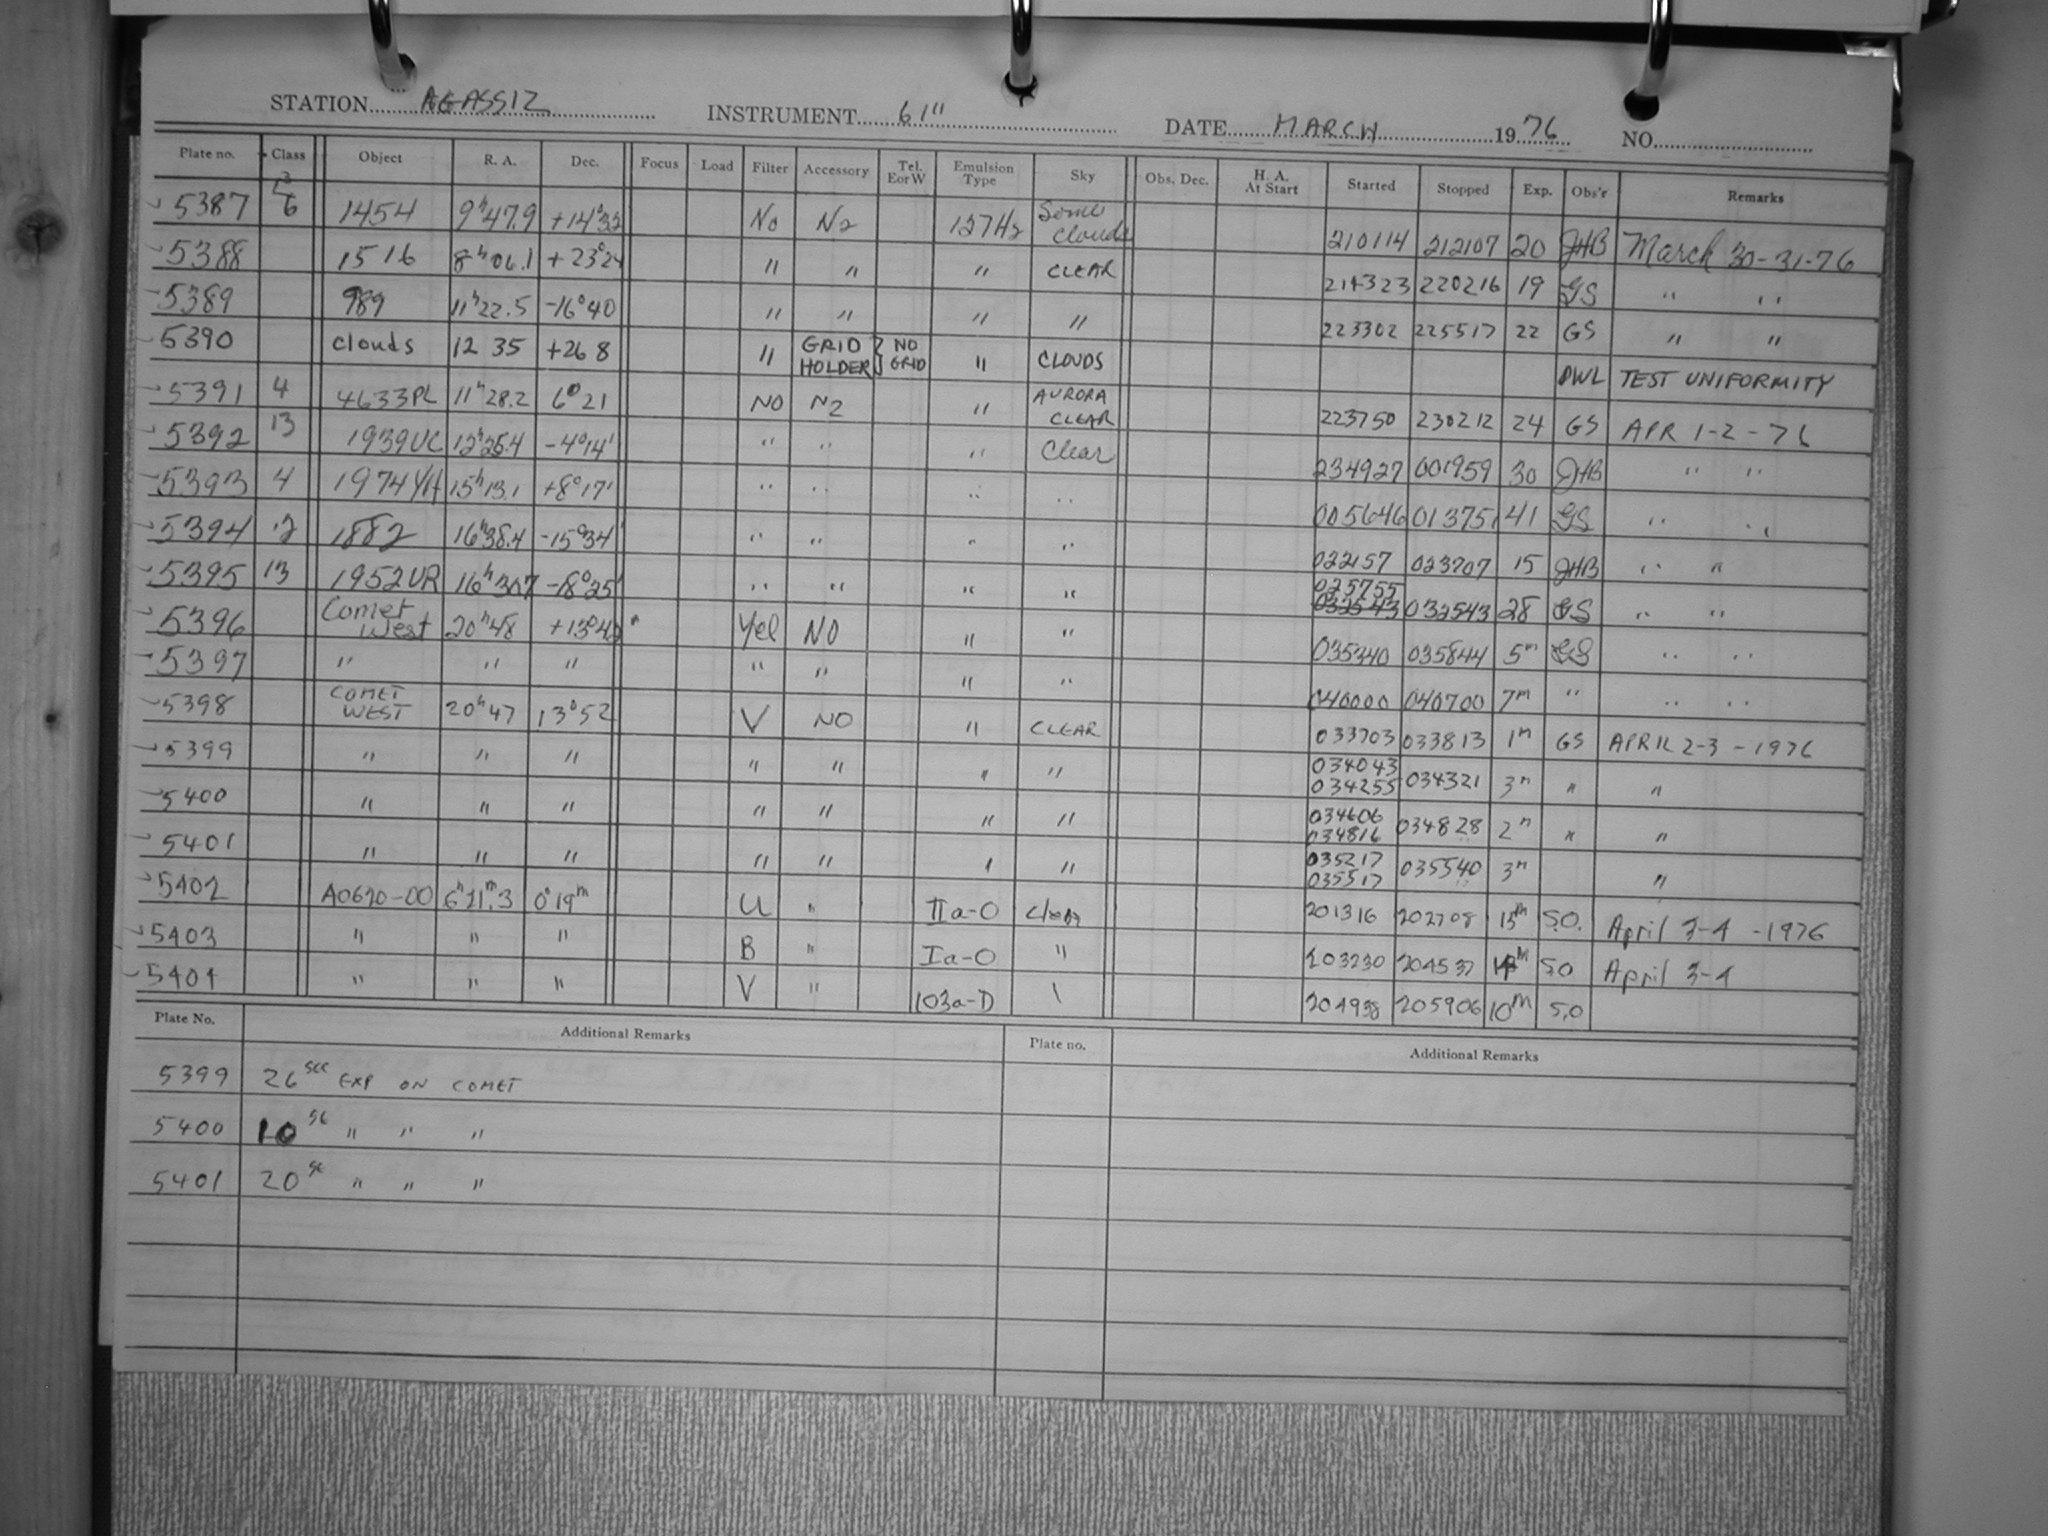 STATION AGASSIZ INSTRUMENT 61" DATE MARCH 1976 NO.
Plate no. Class Object R. A. Dec. Focus Load Filter Accessory Tel. E or W Emulsion Type Sky Obs. Dec. H. A. At Start Started Stopped Exp. Obs'r Remarks
5387 6 1454 9h47.9 +14°32 No N2 127H2 Some clouds 210114 212107 20 JHB March 30-31-76
5388 1516 8h06.1 +23°24 " " " CLEAR 214323 220216 19 GS " "
5389 989 11h22.5 -16°40 " " " " 223302 225517 22 GS " "
5390 clouds 12 35 +26 8 " GRID HOLDER } NO GRID " CLOUDS DWL TEST UNIFORMITY
5391 4 4633PL 11h28.2 6°21 NO N2 " AURORA CLEAR 223750 230212 24 GS APR 1-2-76
5392 13 1939UC 12h25.4 -4°14' " " " Clear 234927 001959 30 JHB " "
5393 4 1974YH 15h13.1 +8°17' " " " " 005646 013751 41 GS " "
5394 12 1882 16h38.4 -15°34' " " " " 022157 023707 15 JHB " "
5395 13 1952UR 16h30.7 -18°25' " " " " 025755 032543 032543 28 GS " "
5396 Comet West 20h48 +13°42 Yel NO " " 035340 035844 5m GS " "
5397 " " " " " " " 040000 040700 7m " " "
5398 COMET WEST 20h47 13°52 V NO " CLEAR 033703 033813 1m GS APRIL 2-3-1976
5399 " " " " " " " 034043 034255 034321 3m " "
5400 " " " " " " " 034606 034816 034828 2m " "
5401 " " " " " " " 035217 035517 035540 3m "
5402 A0620-00 6h21m.3 0°19m U " IIa-O Clear 201316 202708 15m S.O. April 3-4-1976
5403 " " " B " Ia-O " 203230 204537 S.O April 3-4
5404 " " " V " 103a-D \ 204938 205906 10m S.O
Plate No. Additional Remarks Plate no. Additional Remarks
5399 26sec EXP ON COMET
5400 10sec " " "
5401 20sec " " "